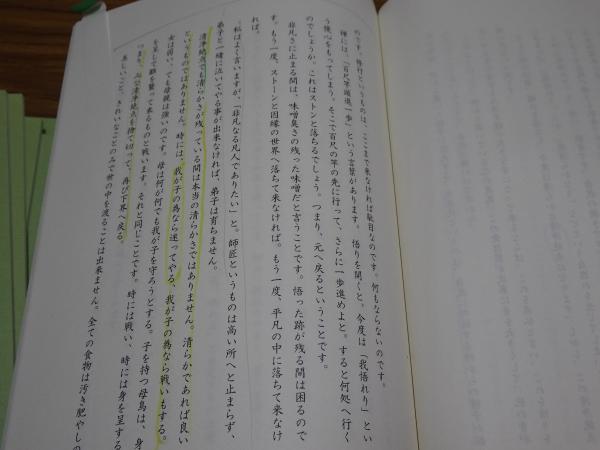 のです。修行というものは、ここまで来なければ駄目なのです。何もならないのです。
禅には、「百尺竿頭進一歩」という言葉があります。悟りを開くと、今度は「我悟れり」とい
う慢心をもってしまう。そこで百尺の竿の先に行って、さらに一歩進めよと。すると何処へ行く
のでしょうか。これはストンと落ちるでしょう。つまり、元へ戻るということです。
非凡さに止まる間は、味噌臭さの残った味噌だと言うことです。悟った跡が残る間は困るので
す。もう一度、ストーンと因縁の世界へ落ちて来なければ。もう一度、平凡の中に落ちて来なけ
れば。
私はよく言いますが、「非凡なる凡人でありたい」と。師匠というものは高い所へと止まらず、
弟子と一緒に泣いてやる事が出来なければ、弟子は育ちません。
清浄地点でも清らかさが残っている間は本当の清らかさではありません。清らかであれば良い
というものではありません。時には、我が子の為なら迷ってやる、我が子の為なら戦いもする。
女は弱い、ても母親は強いのです。母は何が何でも我が子を守ろうとする。子を持つ母鳥は、身
を呈して雛を襲って来るものと戦います。それと同じことです。時には戦い、時には身を呈する
つまり、清浄地点を捨て切って、再び下界へ戻る。
美しいこと、きれいなことのみで世の中を渡ることは出来ません。全ての食物は汚き肥やしの